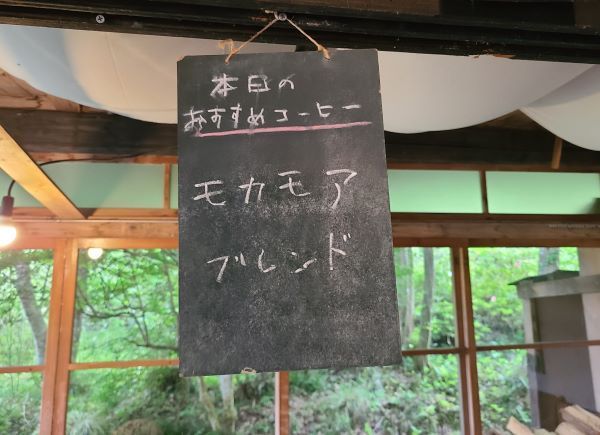 本日の
おすすめコーヒー
モカモア
ブレンド